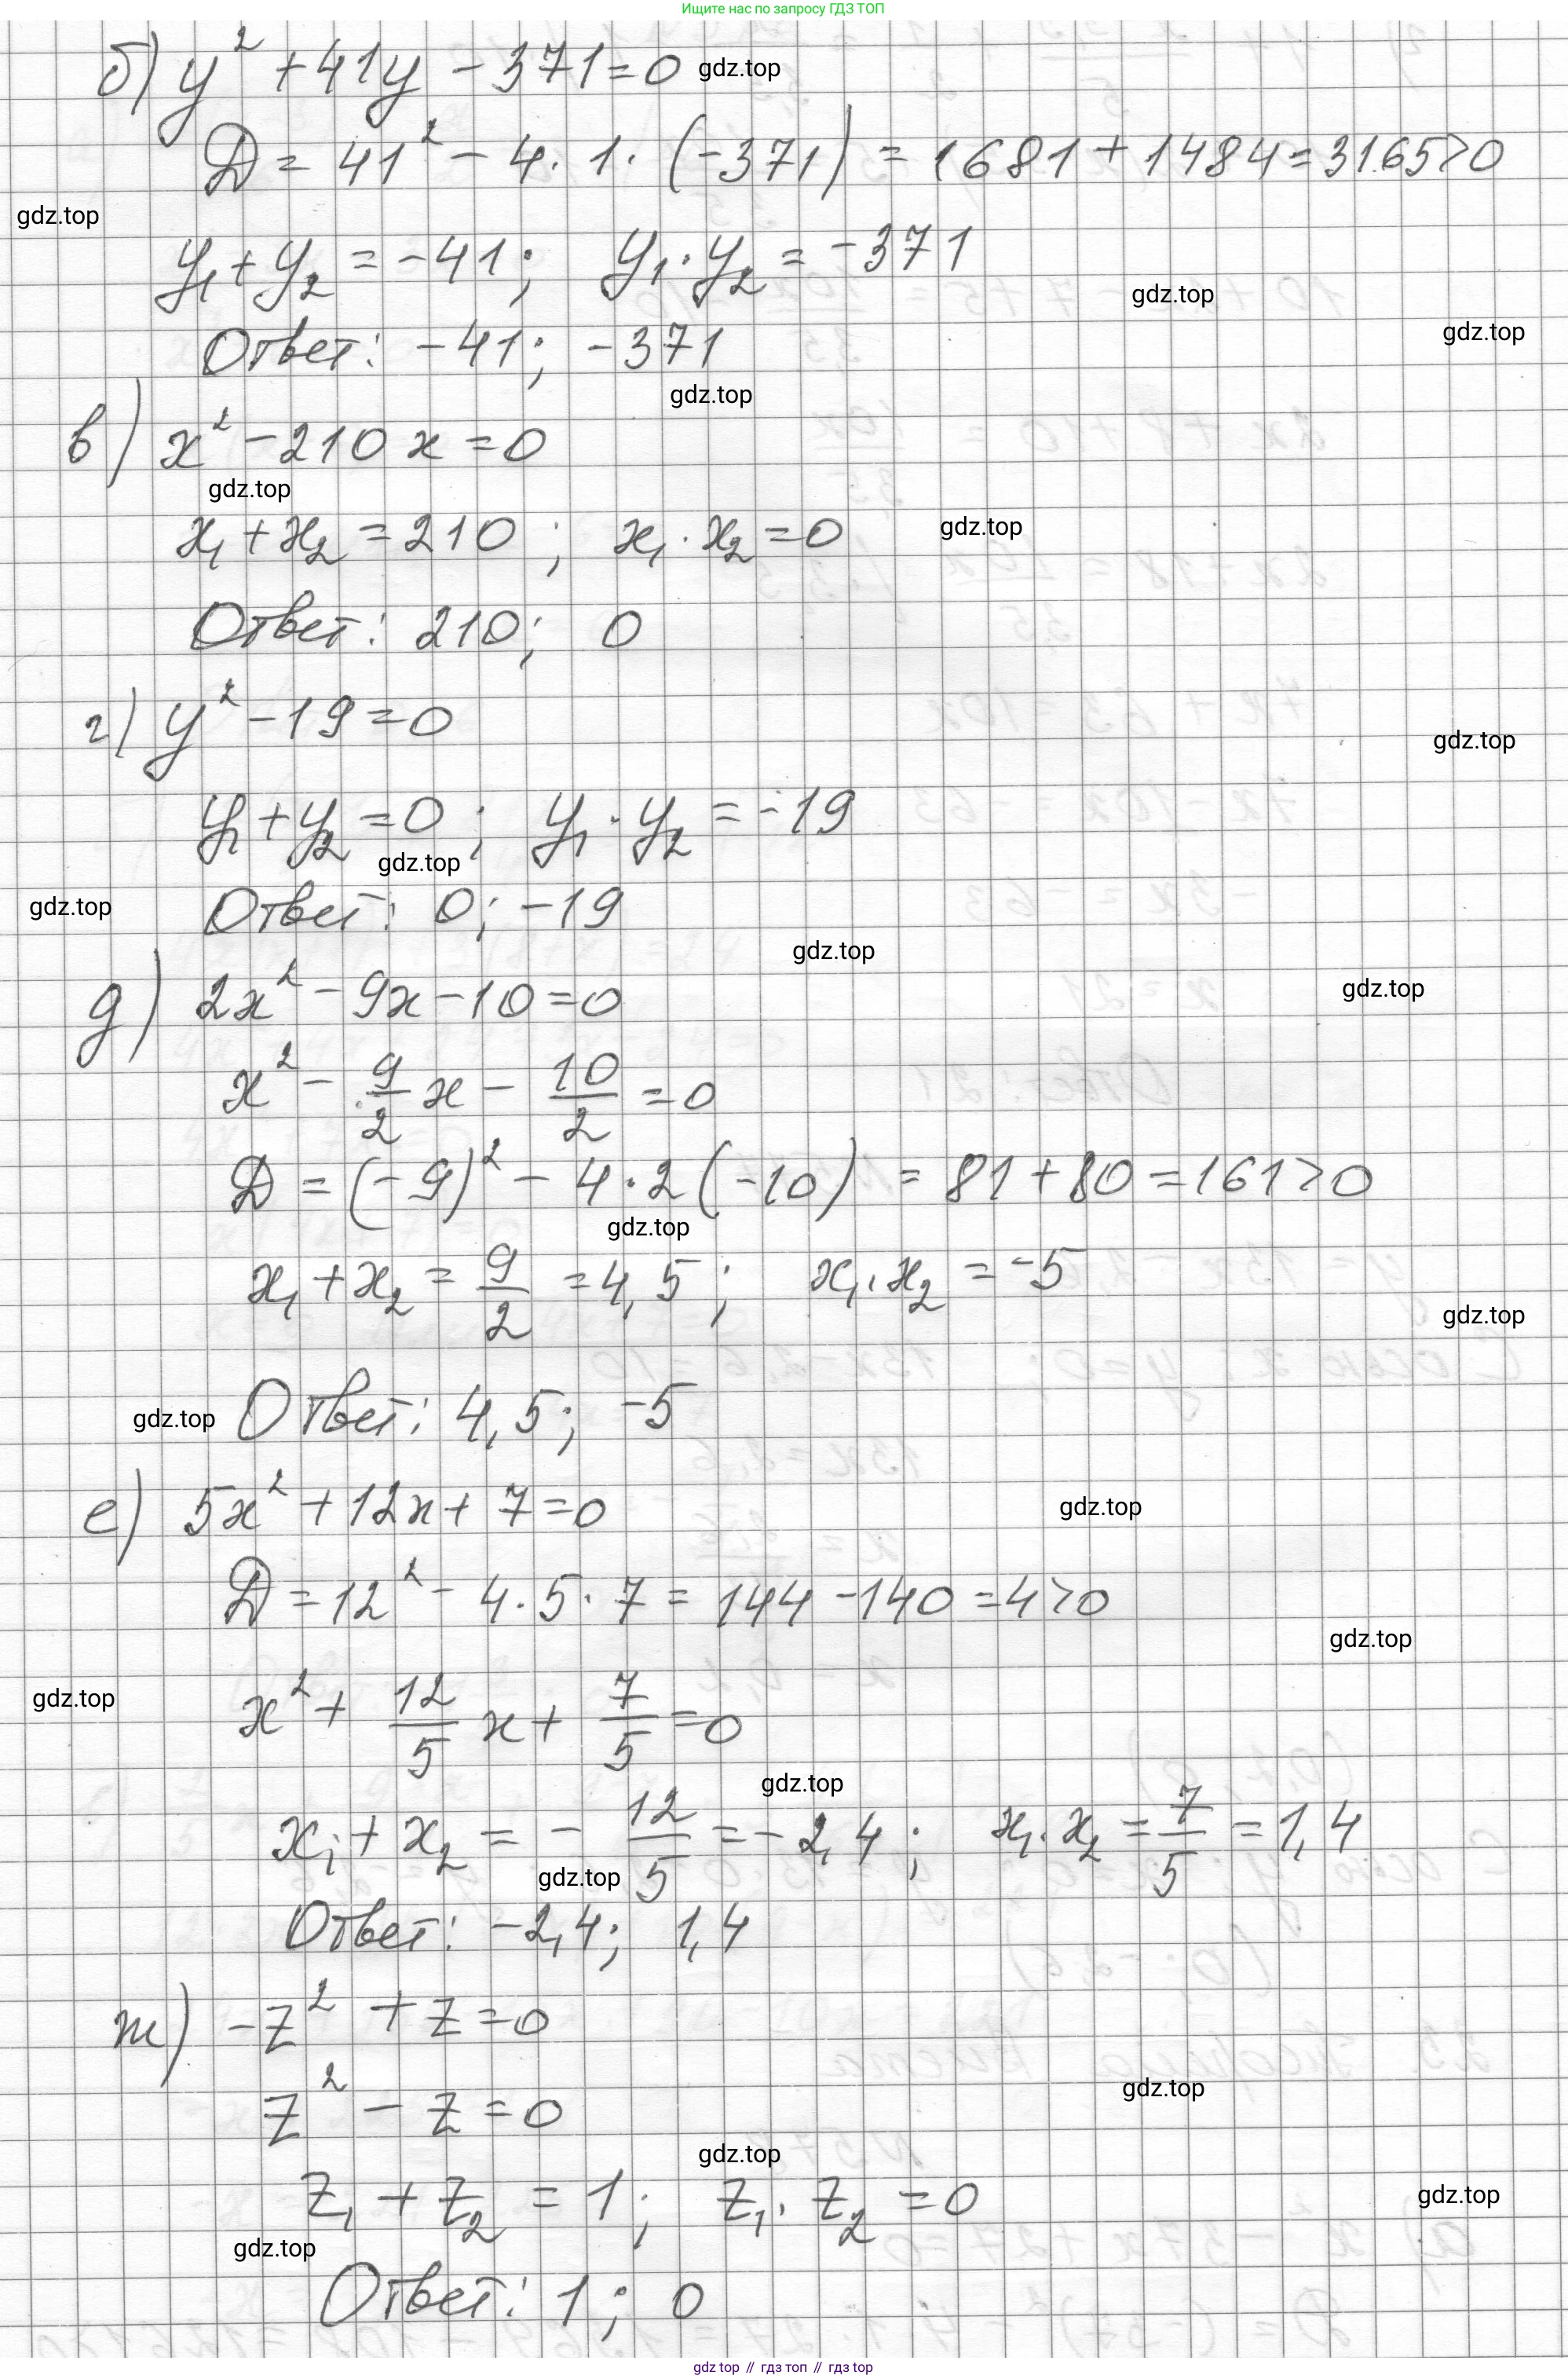 Ищите нас по запросу ГДЗ ТОП
б) y² + 41y - 371 = 0 gdz.top
D = 41² - 4 · 1 · (-371) = 1681 + 1484 = 3165 > 0
gdz.top
y₁ + y₂ = -41; y₁ · y₂ = -371
gdz.top
gdz.top
Ответ: -41; -371
gdz.top
в) x² - 210x = 0
gdz.top
x₁ + x₂ = 210; x₁ · x₂ = 0 gdz.top
Ответ: 210; 0
г) y² - 19 = 0
gdz.top
y₁ + y₂ = 0; y₁ · y₂ = -19
gdz.top
gdz.top Ответ: 0; -19
gdz.top
д) 2x² - 9x - 10 = 0 gdz.top
x² - 9/2 x - 10/2 = 0
D = (-9)² - 4 · 2 (-10) = 81 + 80 = 161 > 0
gdz.top
x₁ + x₂ = 9/2 = 4,5; x₁ · x₂ = -5
gdz.top
gdz.top Ответ: 4,5; -5
е) 5x² + 12x + 7 = 0 gdz.top
D = 12² - 4 · 5 · 7 = 144 - 140 = 4 > 0
gdz.top
gdz.top x² + 12/5 x + 7/5 = 0
gdz.top
x₁ + x₂ = - 12/5 = -2,4; x₁ · x₂ = 7/5 = 1,4
gdz.top
Ответ: -2,4; 1,4
ж) -z² + z = 0
gdz.top
z² - z = 0
gdz.top
z₁ + z₂ = 1; z₁ · z₂ = 0 gdz.top
gdz.top
Ответ: 1; 0
gdz top // гдз топ // гдз top